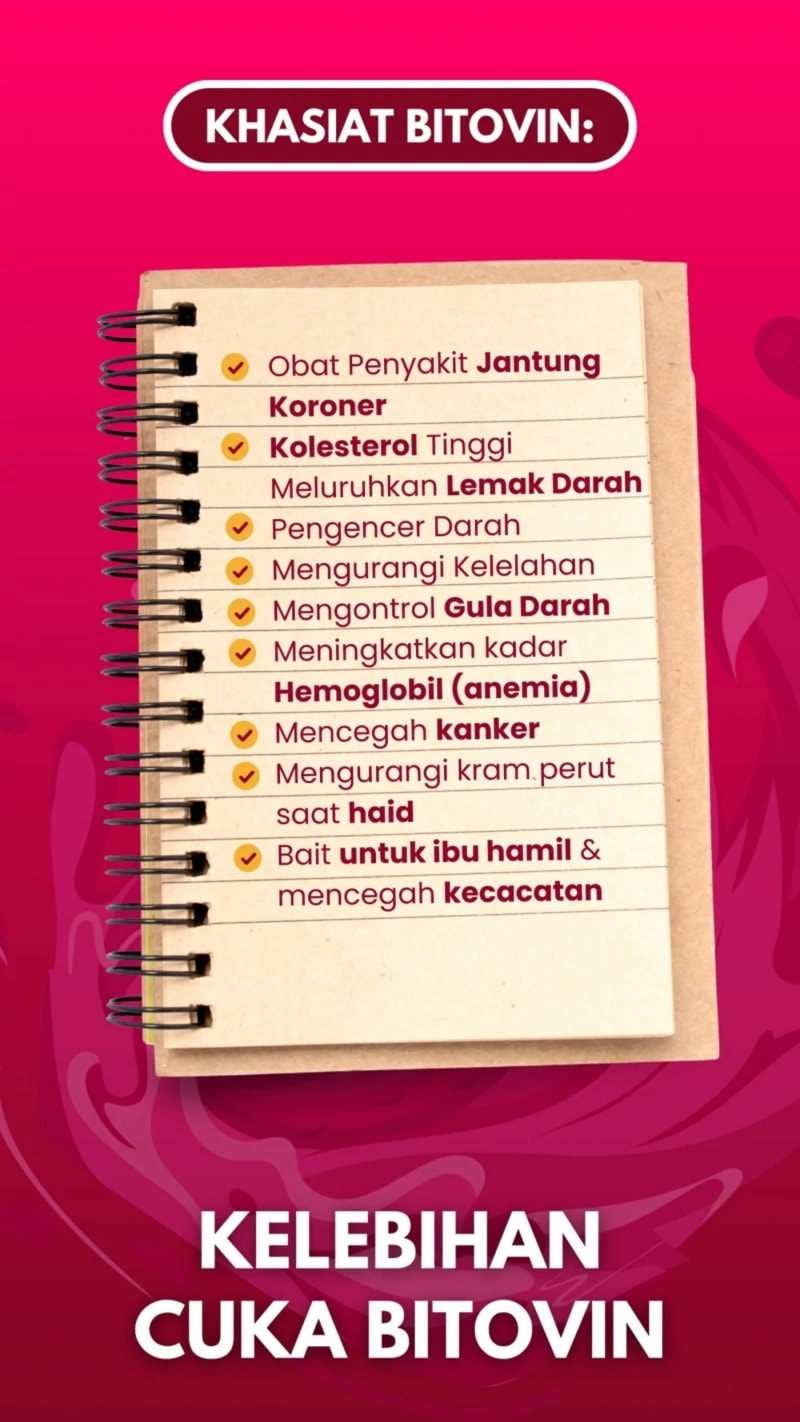 KHASIAT BITOVIN:
Obat Penyakit Jantung
Koroner
Kolesterol Tinggi
Meluruhkan Lemak Darah
Pengencer Darah
Mengurangi Kelelahan
Mengontrol Gula Darah
Meningkatkan kadar
Hemoglobil (anemia)
Mencegah kanker
Mengurangi kram perut
saat haid
Bait untuk ibu hamil &
mencegah kecacatan
KELEBIHAN
CUKA BITOVIN